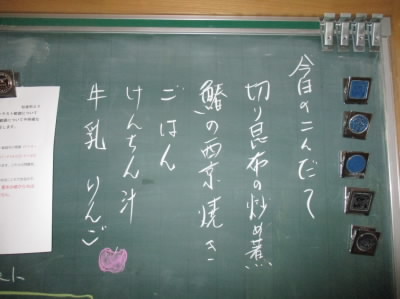 今日のこんだて
切り昆布の炒め煮
鰆の西京焼き
ごはん
けんちん汁
牛乳 りんご